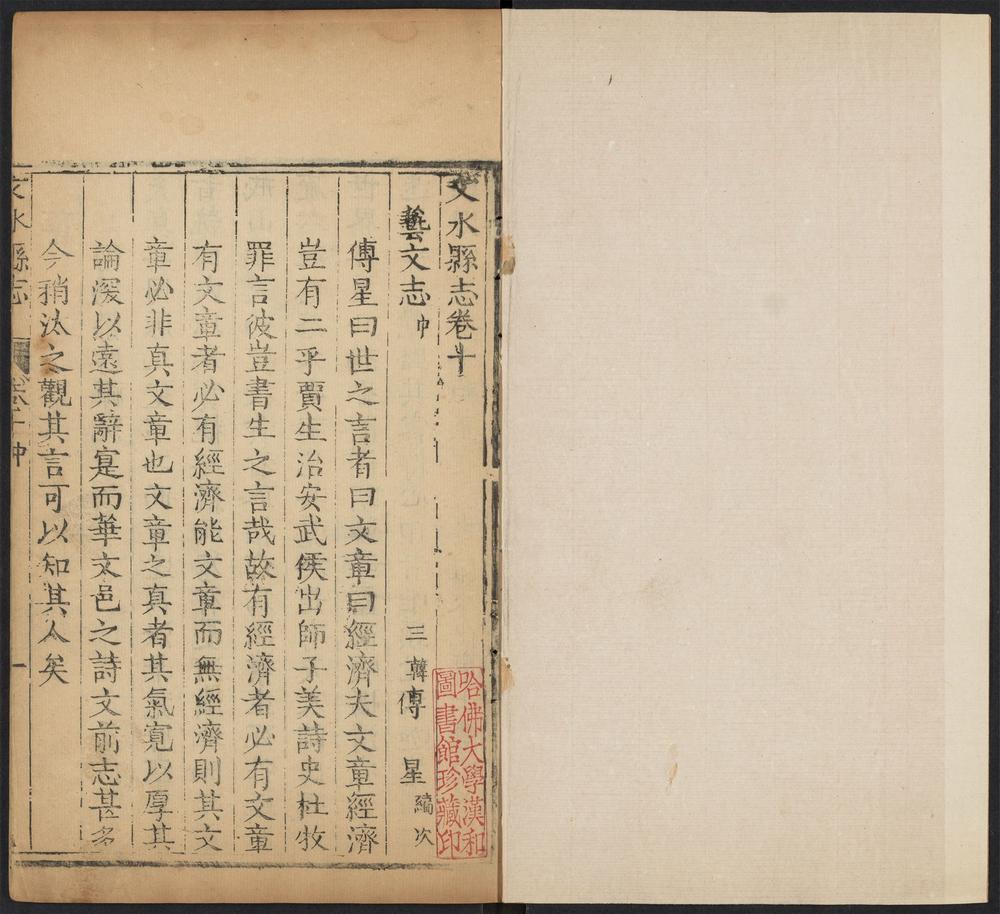 文水縣志卷十
藝文志 中 三韓傅星編次
傅星曰世之言者曰文章曰經濟夫文章經濟
豈有二乎賈生治安武侯出師子美詩史杜牧
罪言彼豈書生之言哉故有經濟者必有文章
有文章者必有經濟能文章而無經濟則其文
章必非真文章也文章之真者其氣寬以厚其
論深以遠其辭寔而華文邑之詩文前志甚多
今稍汰之觀其言可以知其人矣
文水縣志 卷十中 一
哈佛大學漢和
圖書館珍藏印